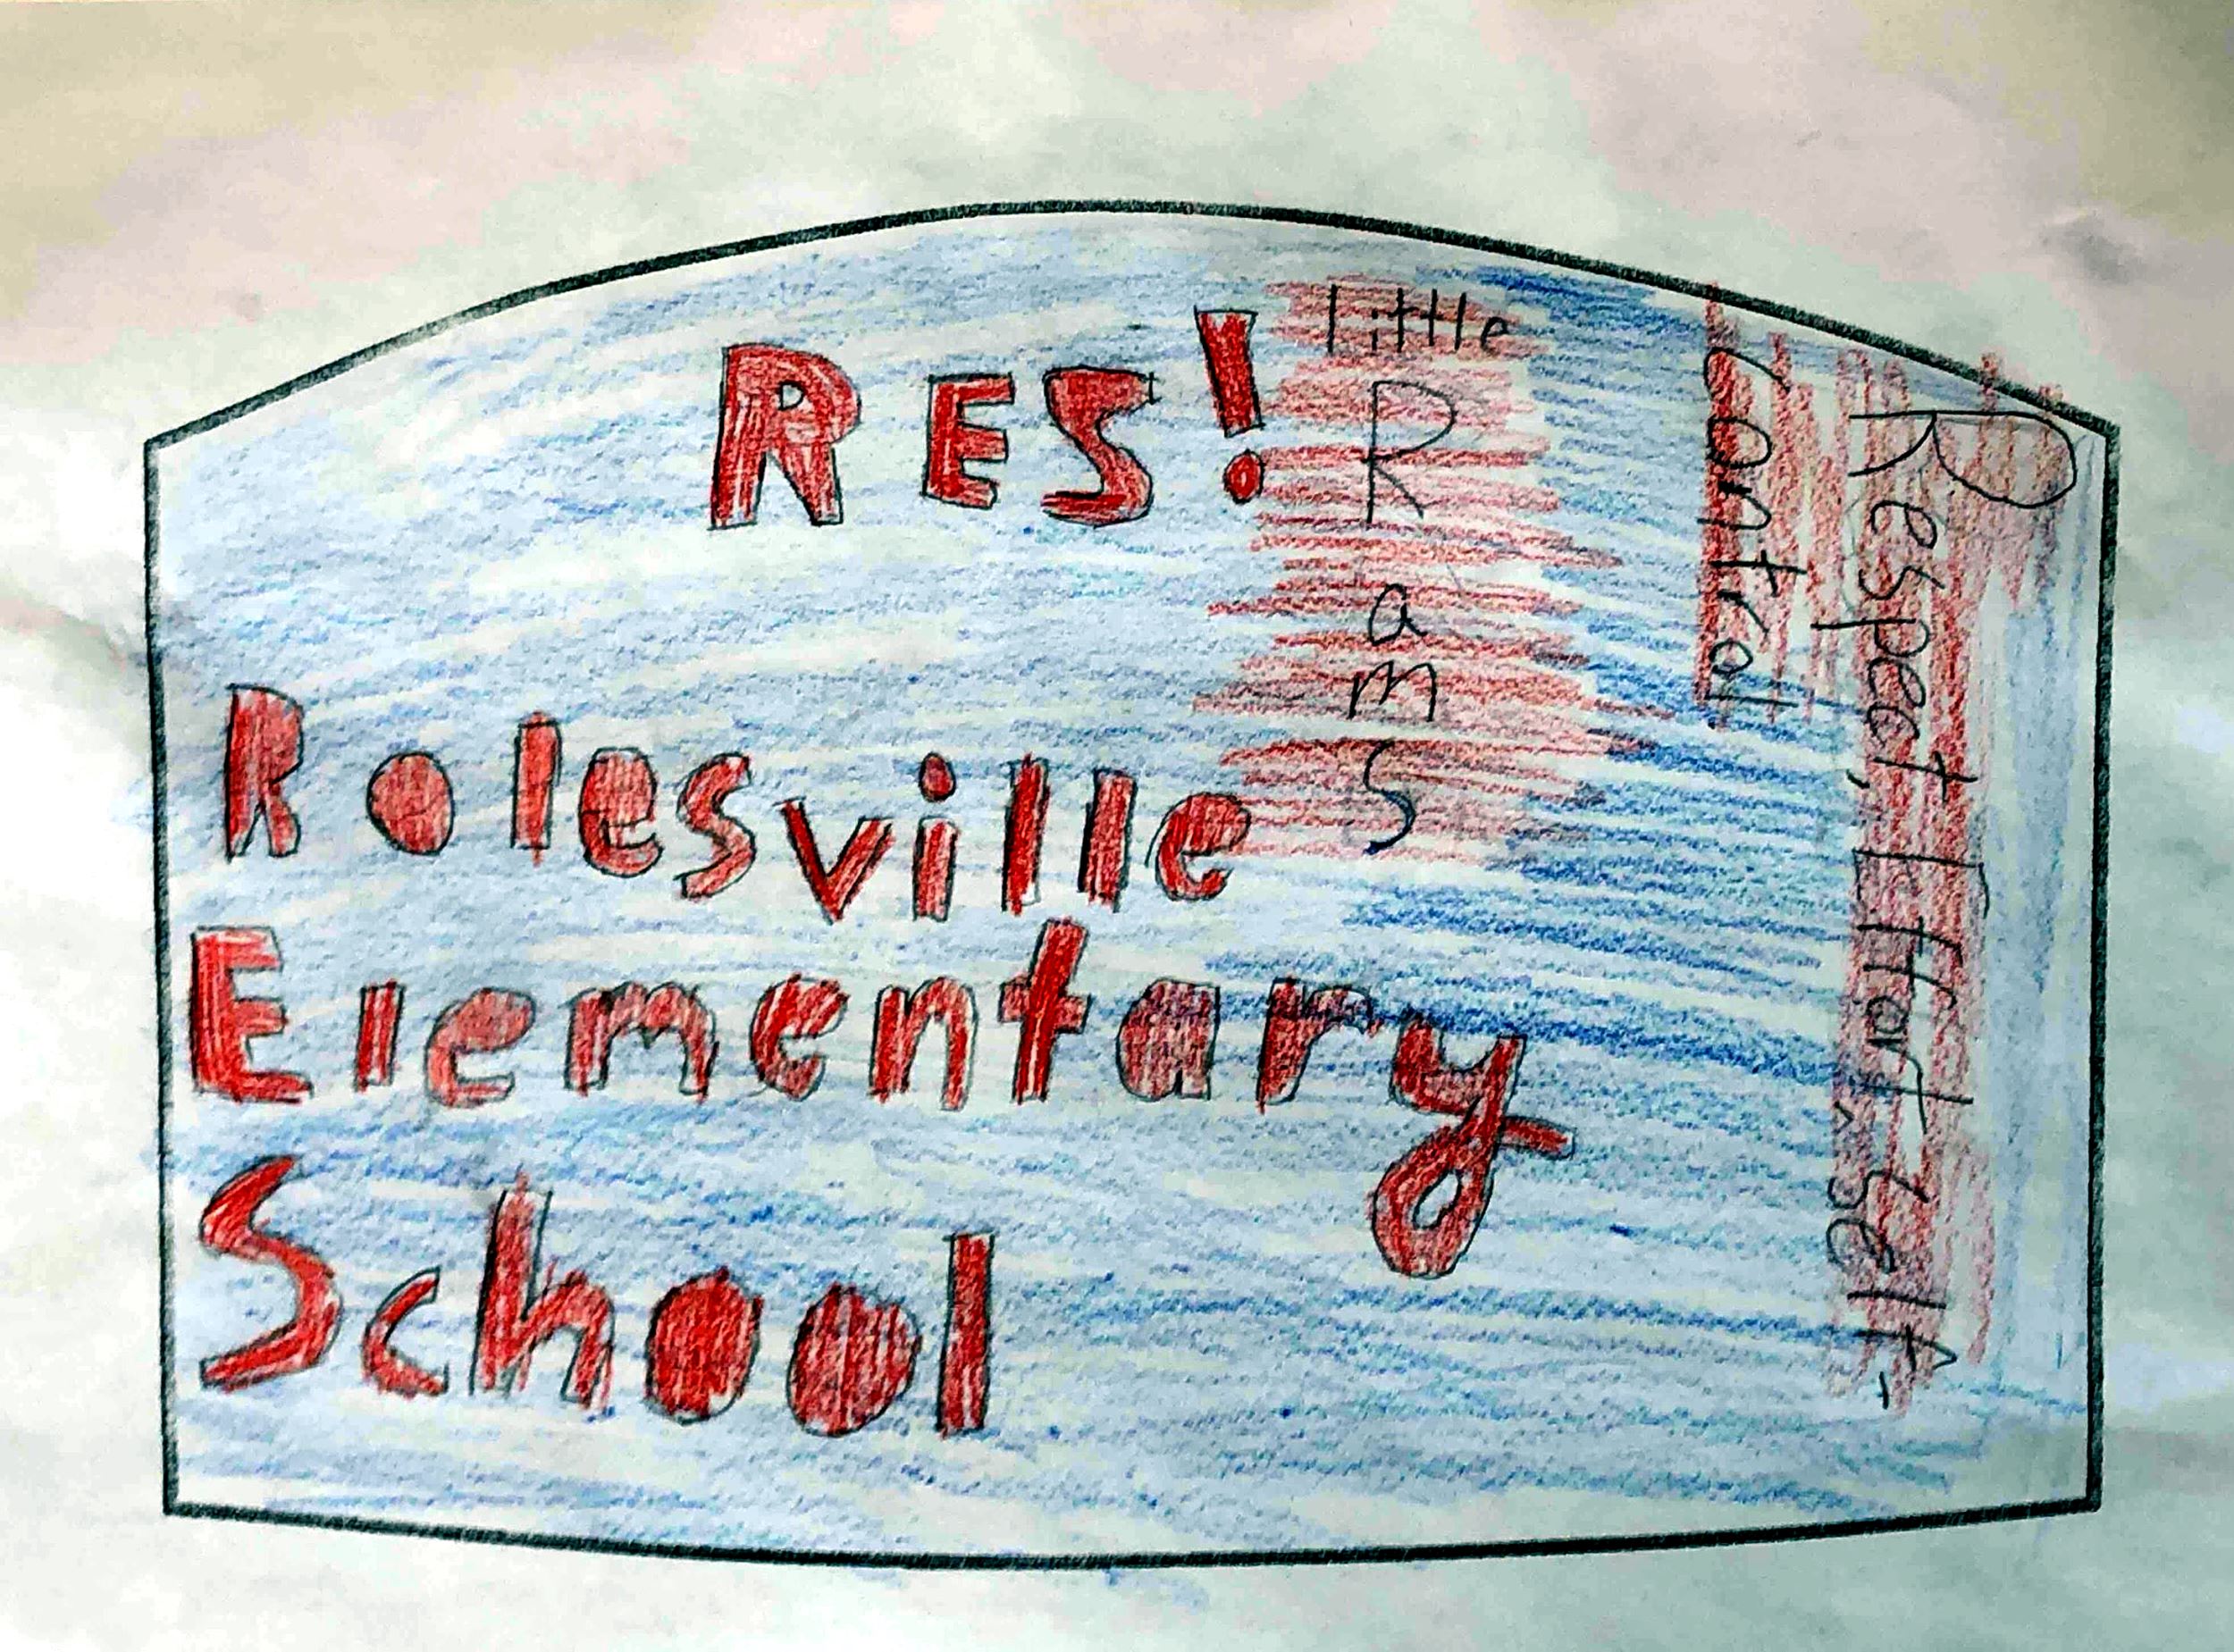 RES!
Rolesville
Elementary
School
little
Rams
Respect, Effort & Self-
Control